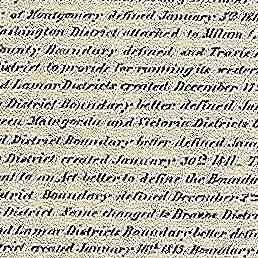 of Montgomery defined January 3d 18
ashington District attached to Milam
ounty Boundary defined and Travis
istrict to provide for running its western
nd Lamar Districts created, December 17
District Boundary better defined Jan
een Matagorda and Victoria Districts D
District Boundary better defined Janu
District created January 30th 1841. T
ent to an Act better to define the Bound
District Boundary defined December 2
District. Name changed to Brown Distri
nd Lamar Districts Boundary better d
trict created January 16th 1843. Boundary